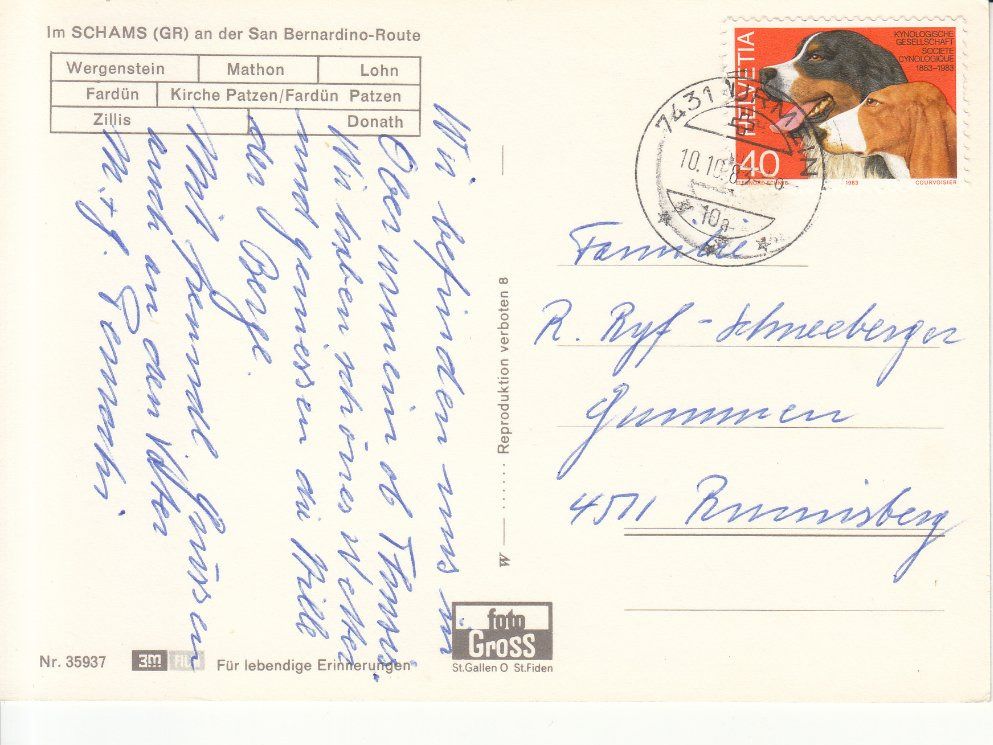 Im SCHAMS (GR) an der San Bernardino-Route
Wergenstein Mathon Lohn
Fardün Kirche Patzen/Fardün Patzen
Zillis Donath
Wir befinden uns in
Obermein ob Thusis.
Wir haben schönes Wetter
und geniessen die Stille
der Berge.
Mit freundl Grüssen
auch an den Vater
M. + g. Germann
HELVETIA
KYNOLOGISCHE
GESELLSCHAFT
SOCIETE
CYNOLOGIQUE
1883-1983
40
1983 COURVOISIER
7431 URMEIN
10.10.83
Familie
R. Ryf - Schneeberger
Gummen
4511 Rumisberg
W — ······ Reproduktion verboten 8
foto
Gross
St.Gallen O St.Fiden
Nr. 35937 3m Film Für lebendige Erinnerungen